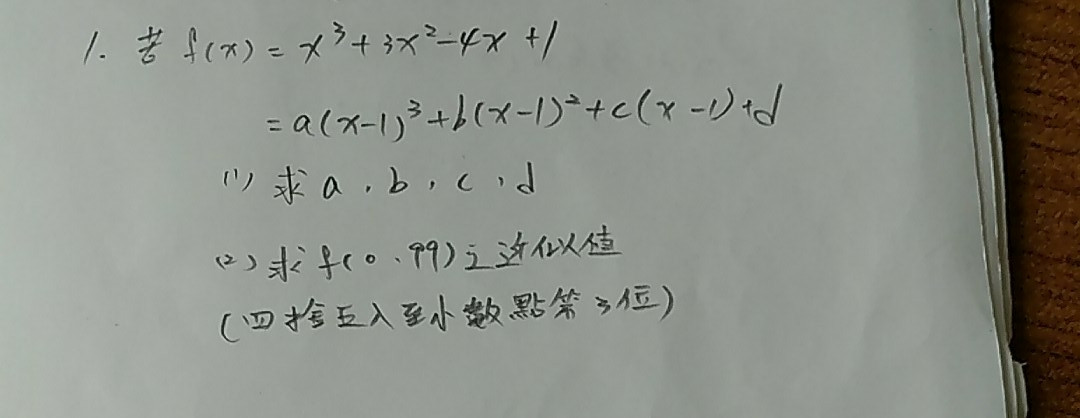 1. 若 f(x) = x³+3x²-4x+1
= a(x-1)³+b(x-1)²+c(x-1)+d
(1) 求 a、b、c、d
(2) 求 f(0.99) 之近似值
(四捨五入至小數點第3位)